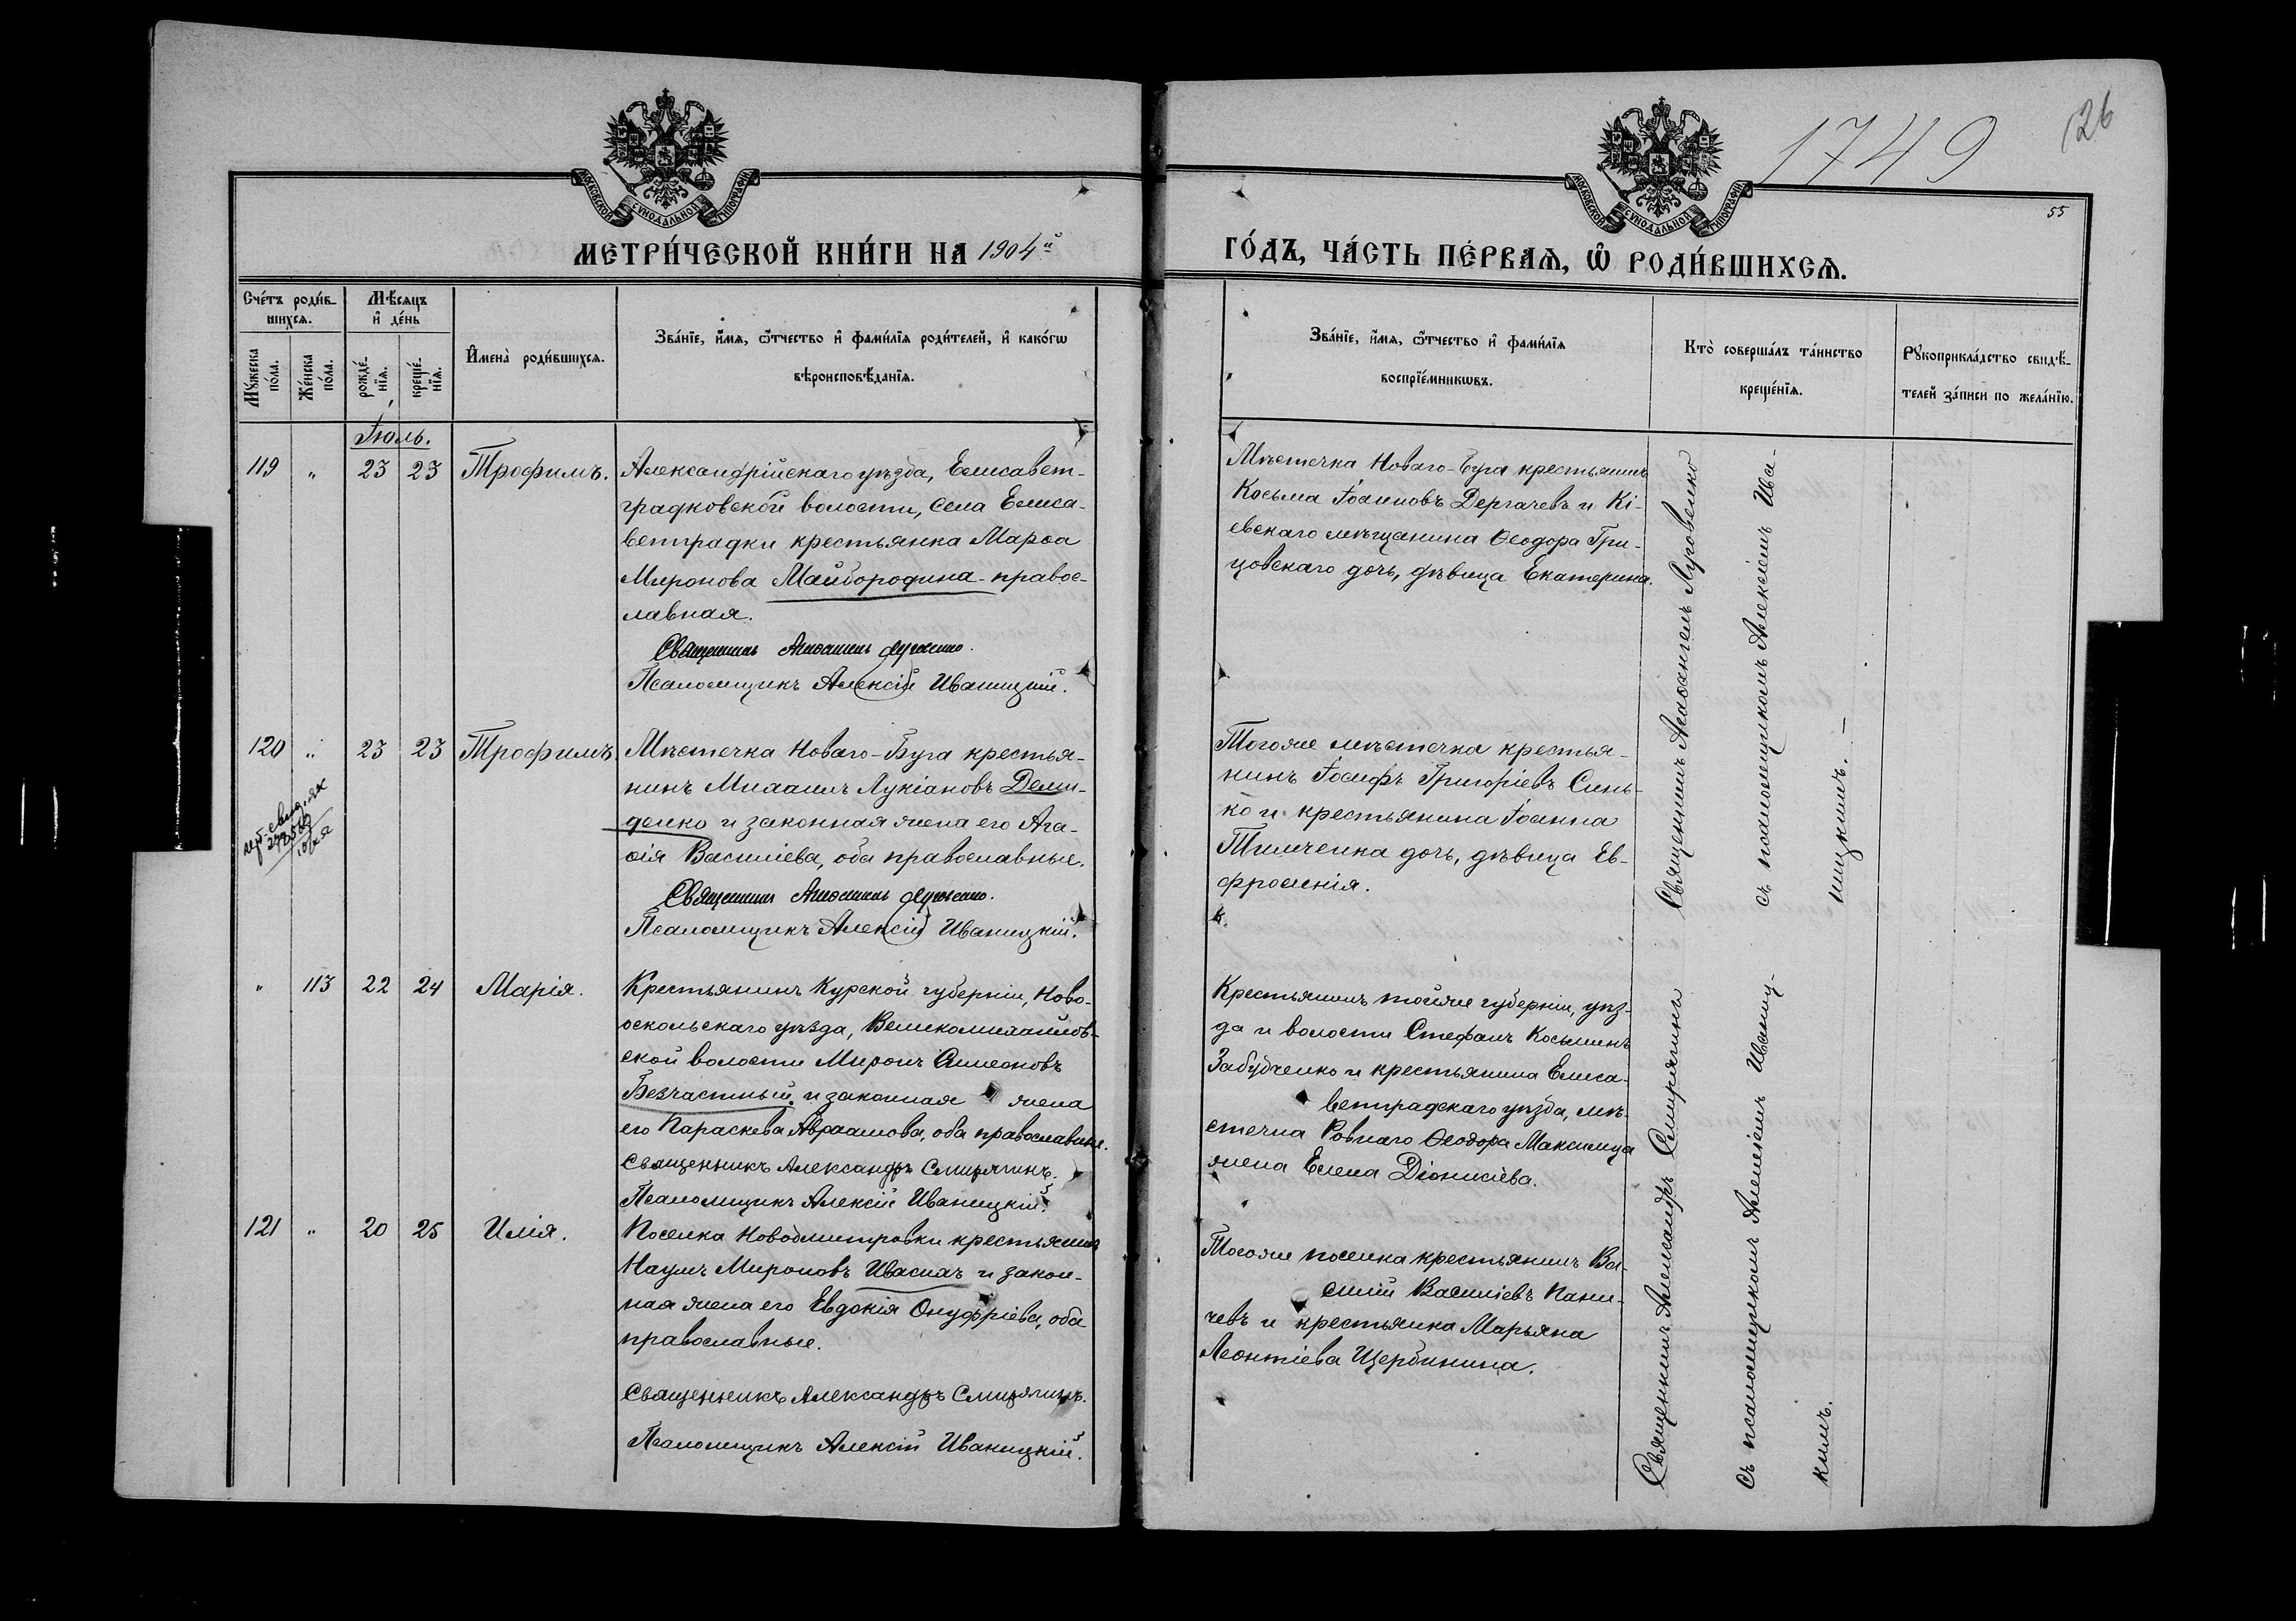 1749
26
55
МОСКОВСКОЙ СѴНОДАЛЬНОЙ ТИПОГРАФІИ
МОСКОВСКОЙ СѴНОДАЛЬНОЙ ТИПОГРАФІИ
МЕТРИ́ЧЕСКОЙ КНИ́ГИ НА 1904й
ГО́ДЪ, ЧА́СТЬ ПЕ́РВАѦ, Ѿ РОДИ́ВШИХСѦ.
Сче́тъ роди́в-
шихсѧ.
Мѣ́сѧцъ
и҆ де́нь
Мꙋ́жеска
по́ла.
Же́нска
по́ла.
рожде́-
нїѧ.
креще́-
нїѧ.
И҆мена̀ роди́вшихсѧ.
Зва́нїе, и҆́мѧ, ѻ҆́тчество и҆ фами́лїѧ роди́телей, и҆ како́гѡ
вѣроисповѣ́данїѧ.
Зва́нїе, и҆́мѧ, ѻ҆́тчество и҆ фами́лїѧ
воспрїе́мникѡвъ.
Кто̀ соверша́лъ та́инство
креще́нїѧ.
Рꙋкоприкла́дство свидѣ́-
телей за́писи по жела́нїю.
Іюль.
119 " 23 23 Трофимъ.
Александрійскаго уѣзда, Елисавет-
градковской волости, села Елиса-
ветградки крестьянка Марѳа
Миронова Майбородина - правос-
лавная.
Священникъ Агаѳангелъ Луговенко.
Псаломщикъ Алексій Иваницкій.
Мѣстечка Новаго-Буга крестьянинъ
Косьма Іоанновъ Дергачевъ и Кі-
евскаго мѣщанина Ѳеодора Гри-
цовскаго дочь, дѣвица Екатерина.
Священникъ Агаѳангелъ Луговенко
съ псаломщикомъ Алексіемъ Ива-
ницкимъ. —
120 " 23 23 Трофимъ
Мѣстечка Новаго-Буга крестья-
нинъ Михаилъ Лукіановъ Деми-
денко и законная жена его Ага-
ѳія Василіева, оба православные.
Священникъ Агаѳангелъ Луговенко.
Псаломщикъ Алексій Иваницкій.
Тогоже мѣстечка крестья-
нинъ Іосифъ Григоріевъ Синь-
ко и крестьянина Іоанна
Тимченка дочь, дѣвица Ев-
фросинія.
" 113 22 24 Марія.
Крестьянинъ Курской губерніи, Ново-
оскольскаго уѣзда, Великомихайлов-
ской волости Миронъ Симеоновъ
Безчастный и законная жена
его Параскева Авраамова, оба православные.
Священникъ Александръ Смирягинъ.
Псаломщикъ Алексій Иваницкій.
Крестьянинъ тойже губерніи, уѣз-
да и волости Стефанъ Косьминъ
Забудченко и крестьянина Елиса-
ветградскаго уѣзда, мѣ-
стечка Ровнаго Ѳеодора Максимца
жена Елена Діонисіева.
Священникъ Александръ Смирягинъ
съ псаломщикомъ Алексіемъ Иваниц-
кимъ.
121 " 20 25 Илія.
Поселка Новодмитровки крестьянинъ
Наумъ Мироновъ Ивасихъ и закон-
ная жена его Евдокія Онуфріева, оба
православные.
Священникъ Александръ Смирягинъ.
Псаломщикъ Алексій Иваницкій.
Тогоже поселка крестьянинъ Ва-
силій Василіевъ Пани-
чевъ и крестьянка Марьяна
Леонтіева Щербинина.